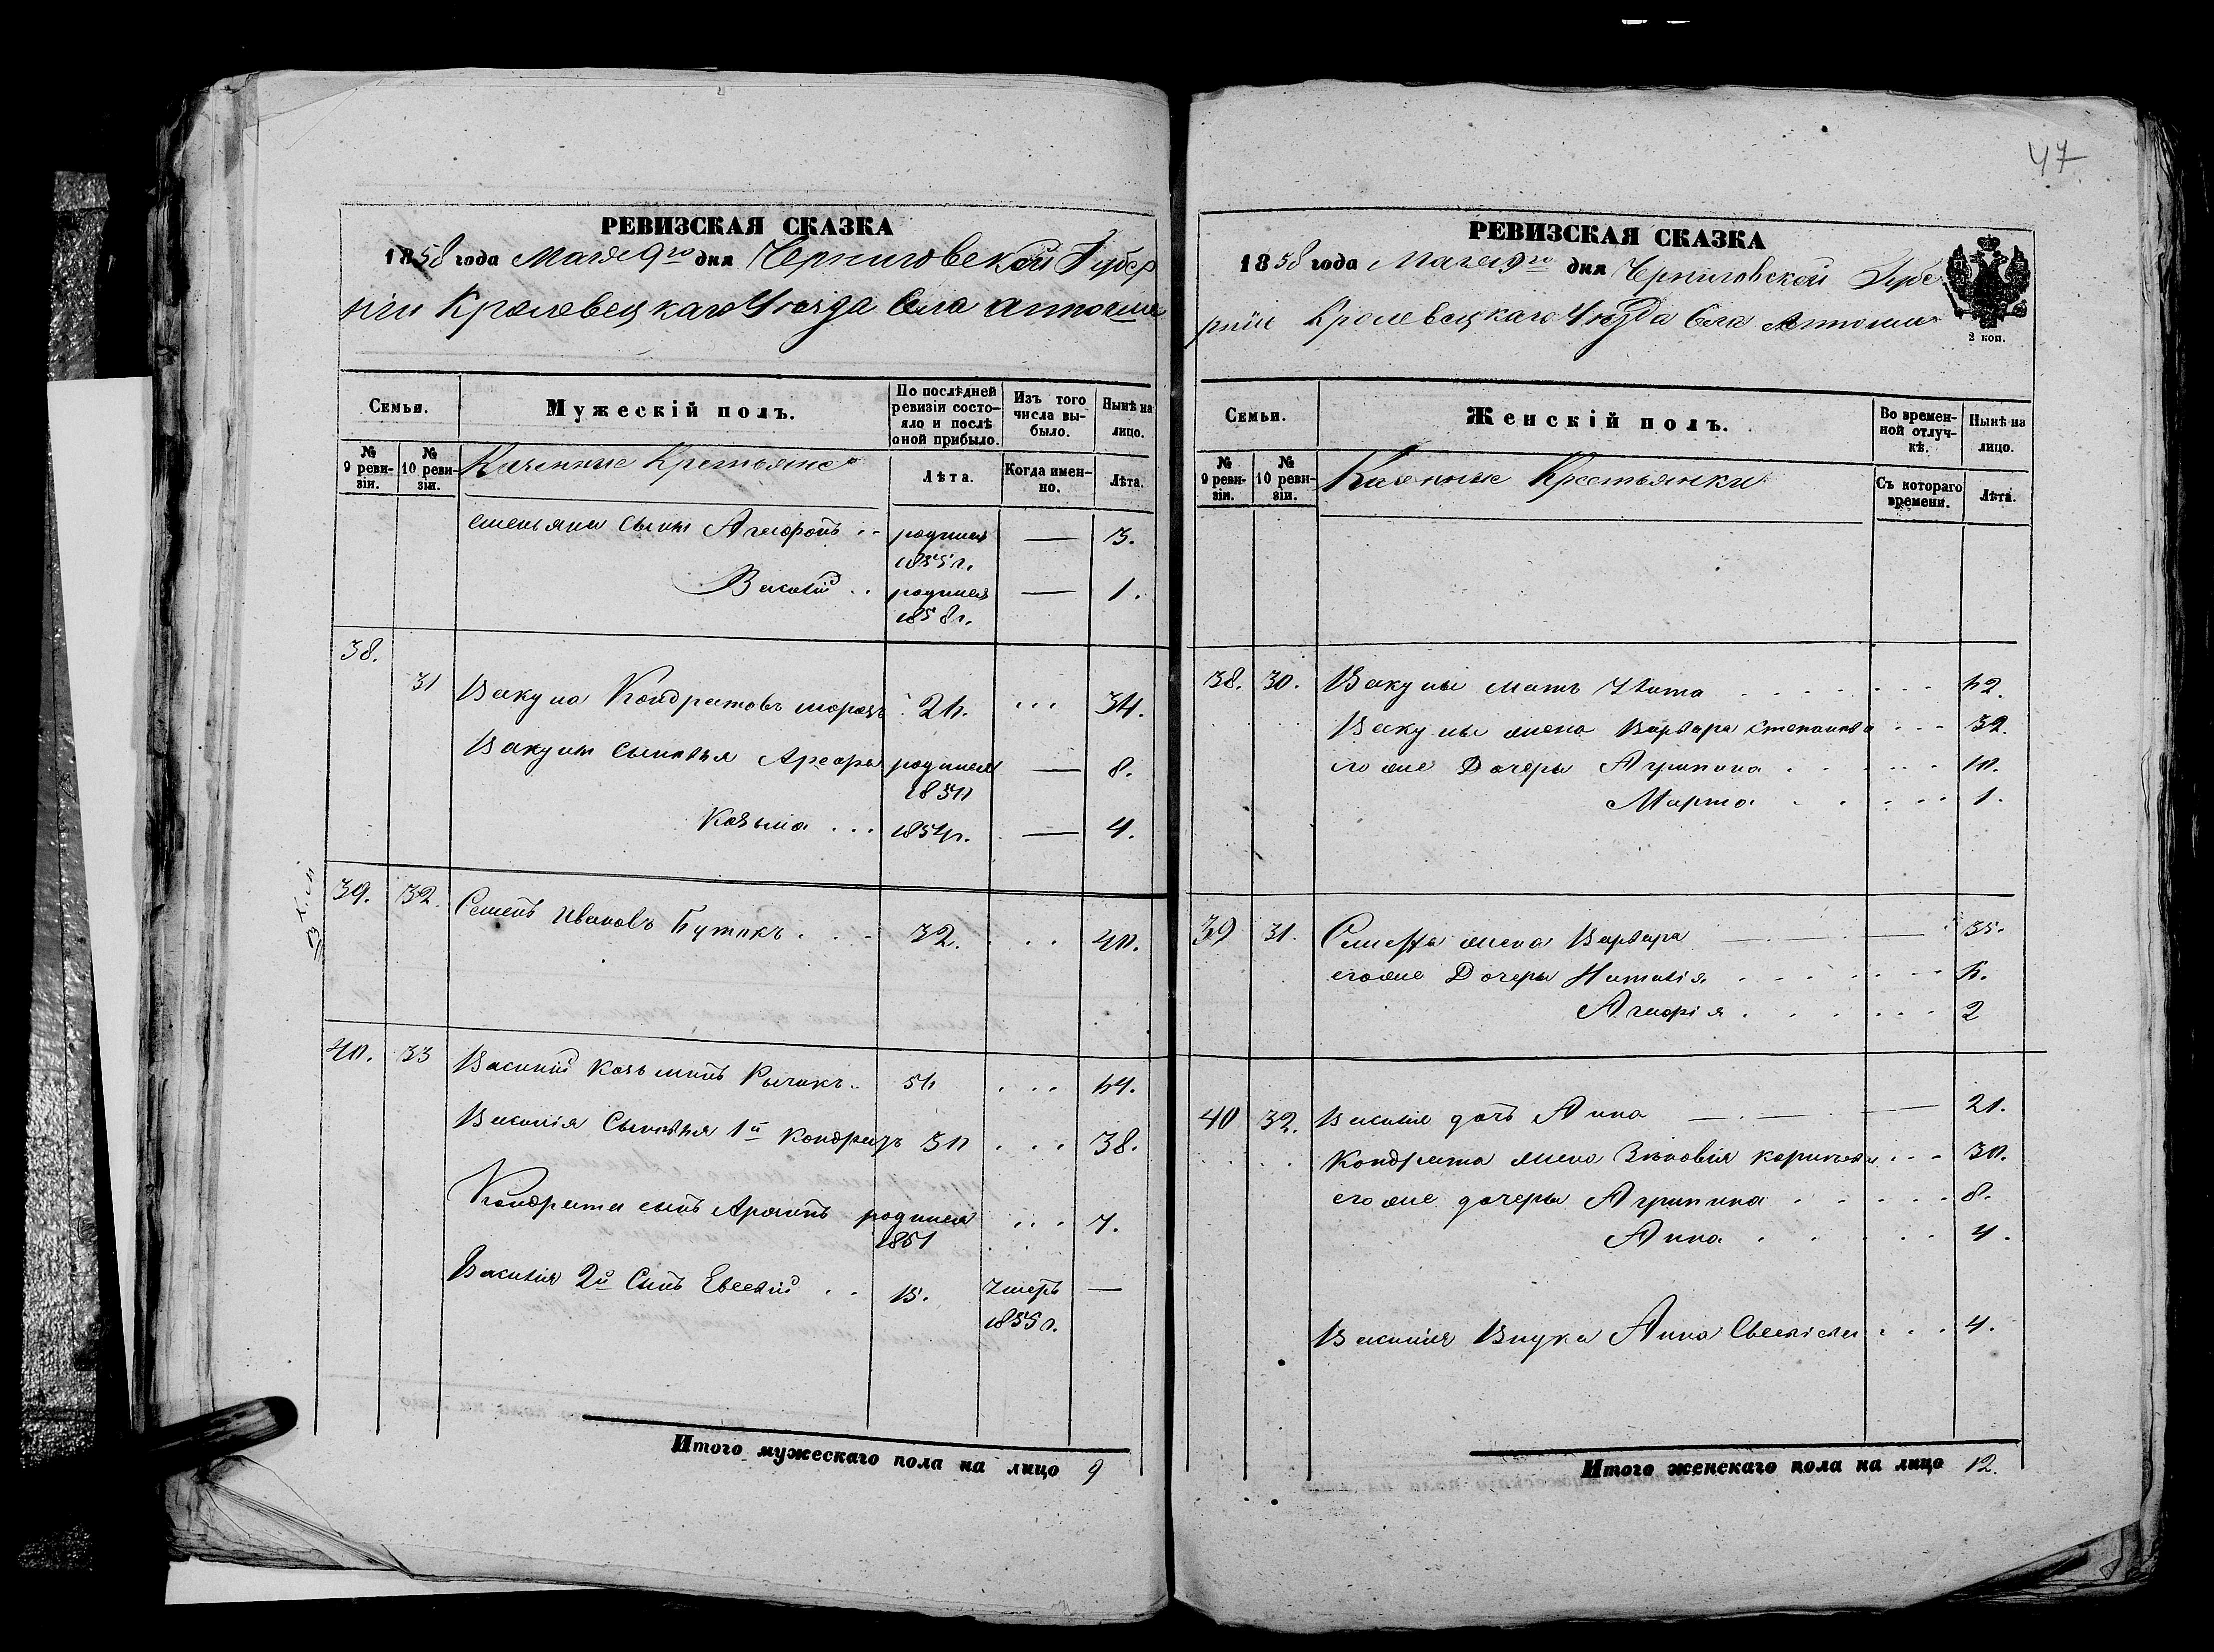 47
РЕВИЗСКАЯ СКАЗКА
1858 года Мая 9го дня Черниговской Губер
ніи Кролевецкаго Уезда Села
Семьи.
Мужескій полъ.
По послѣдней ревизіи состояло и послѣ оной прибыло.
Изъ того числа выбыло.
Нынѣ на лицо.
№ 9 ревизіи.
№ 10 ревизіи.
Казенные Крестьяне
Лѣта.
Когда именно.
Лѣта.
сынъ Агафонъ .. родился 1855 г. — 3.
Василій .. родился 1858 г. — 1.
38.
31 Вакула Кондратовъ морозъ 26. ... 34.
Вакулы сыновья родился — 8.
Козьма ... 1854 г. — 4.
39. 32. Семенъ Ивановъ Бутокъ . . . 32. . . . 40.
40. 33 Василий Козьминъ 56 . . . 64.
Василія Сыновья 1й Кондратъ 30 . . . 38.
Кондрата сынъ родился 1851 ... 7.
Василія 2й Сынъ Евсевій . . 15. Умеръ 1855 г. —
Итого мужескаго пола на лицо 9
РЕВИЗСКАЯ СКАЗКА
1858 года Мая 9го дня Черниговской Губе
рніи Кролевецкаго Уезда Села
2 коп.
Семьи.
Женскій полъ.
Во временной отлучкѣ.
Нынѣ на лицо.
№ 9 ревизіи.
№ 10 ревизіи.
Казенные Крестьянки
Съ котораго времени.
Лѣта.
38. 30. Вакулы мать 62.
Вакулы жена Варвара Степанова 32.
его же Дочери Агрипина 10.
Марфа 1.
39 31. Семена жена Варвара 35.
его же Дочери Наталія 6.
Агафія 2
40 32. Василія дочь Анна 21.
Кондрата жена Зѣновія 30.
его же дочери Агрипина 8.
Анна 4.
Василія Внука Анна 4.
Итого женскаго пола на лицо 12.